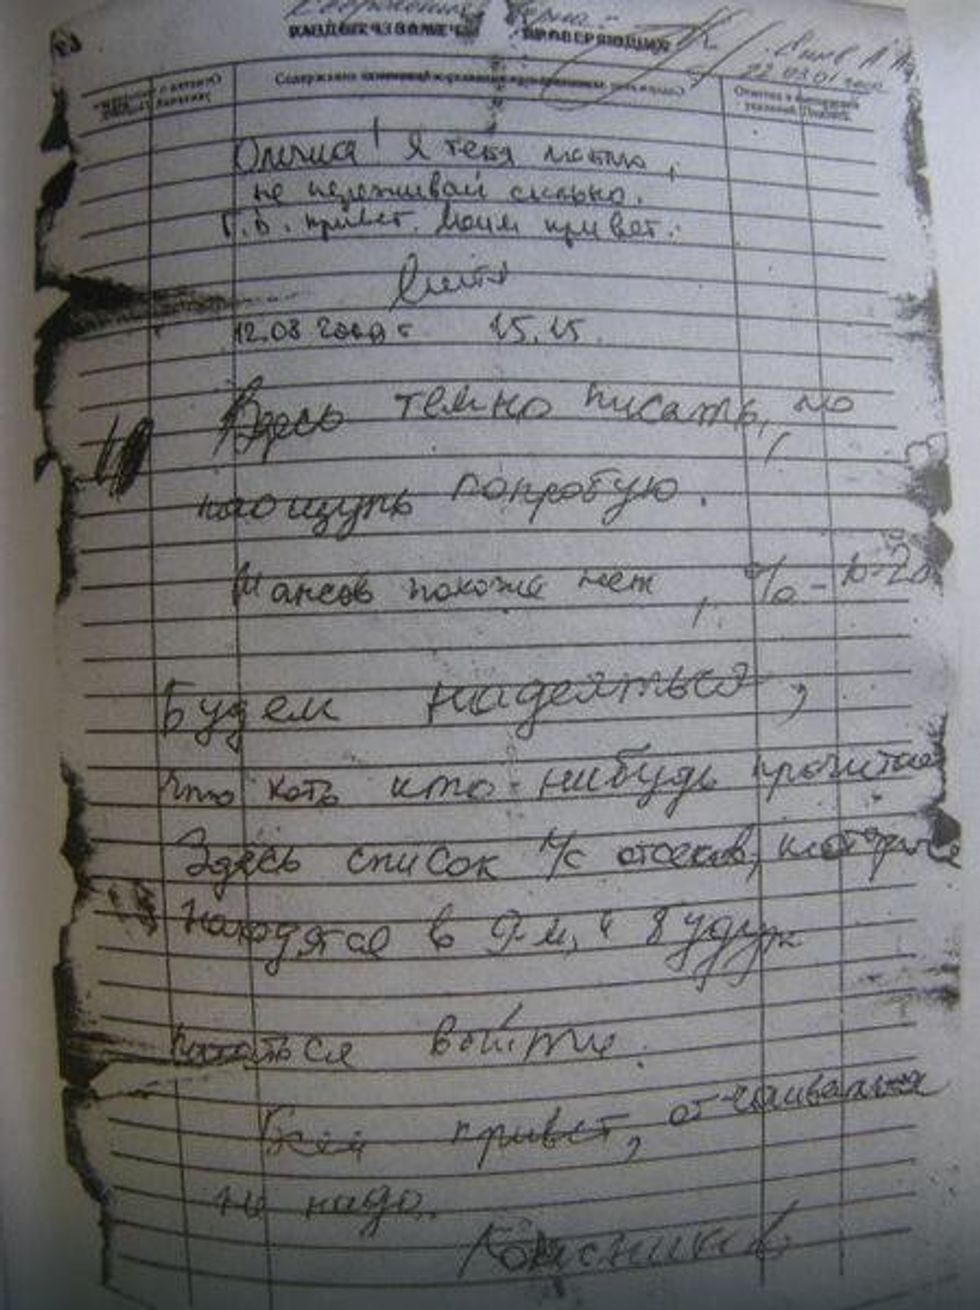 ПРОВЕРЯЮЩИХ
22.03.01
Содержание
Олечка! Я тебя люблю,
не переживай сильно.
Г.В. привет. Моим привет.
Митя
12.08.2000 г. 15.15.
Здесь темно писать, но
наощупь попробую.
Шансов похоже нет, % – 10-20.
Будем надеяться,
что хоть кто-нибудь прочитает
Здесь список л/с отсеков, которые
находятся в 9-м, и будут
пытаться выйти.
Всем привет, отчаиваться
не надо.
Колесников